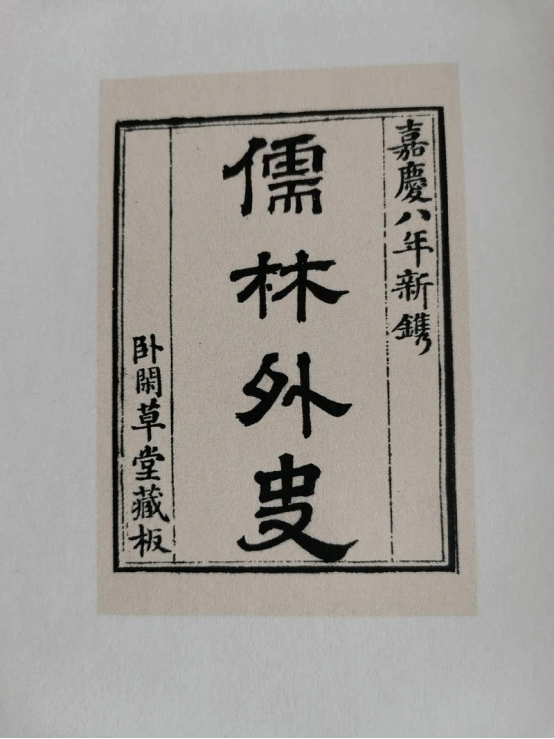 嘉慶八年新鐫
儒林外史
卧閑草堂藏板